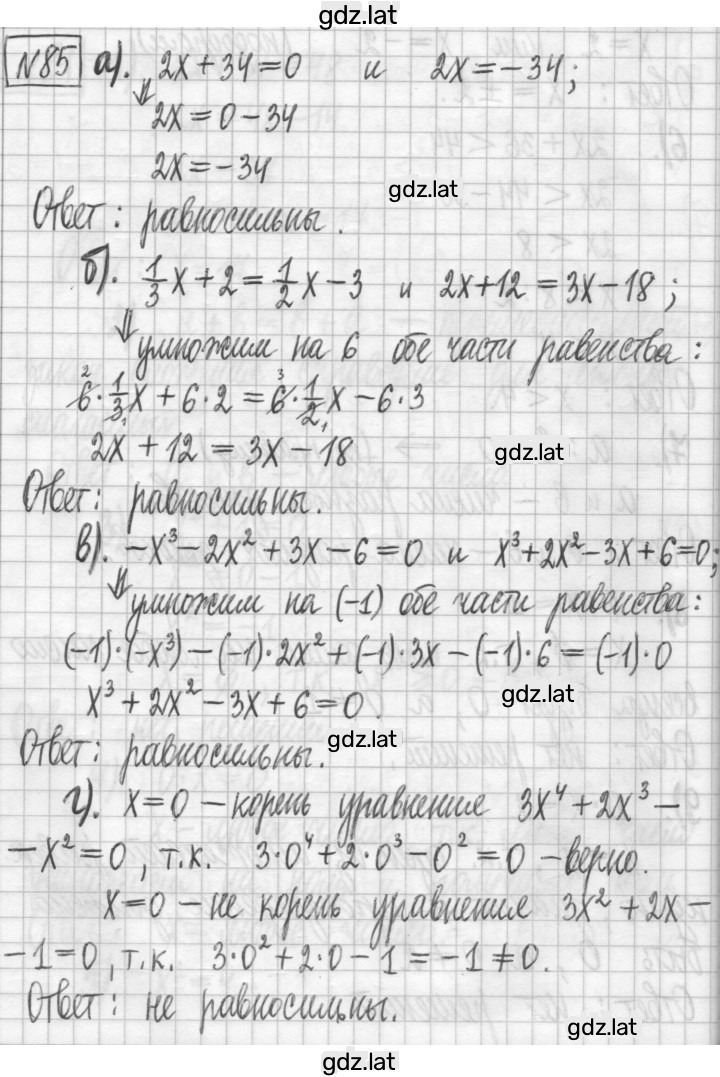 gdz.lat
№85 а). 2x + 34 = 0 и 2x = -34;
⇓ 2x = 0 - 34
2x = -34
gdz.lat
Ответ: равносильны.
б). 1/3 x + 2 = 1/2 x - 3 и 2x + 12 = 3x - 18;
⇓ умножим на 6 обе части равенства:
6² · 1/3₁ x + 6 · 2 = 6³ · 1/2₁ x - 6 · 3
2x + 12 = 3x - 18
gdz.lat
Ответ: равносильны.
в). -x³ - 2x² + 3x - 6 = 0 и x³ + 2x² - 3x + 6 = 0;
⇓ умножим на (-1) обе части равенства:
(-1) · (-x³) - (-1) · 2x² + (-1) · 3x - (-1) · 6 = (-1) · 0
x³ + 2x² - 3x + 6 = 0.
gdz.lat
gdz.lat
Ответ: равносильны.
г). x = 0 - корень уравнения 3x⁴ + 2x³ -
- x² = 0, т.к. 3 · 0⁴ + 2 · 0³ - 0² = 0 - верно.
x = 0 - не корень уравнения 3x² + 2x -
- 1 = 0, т.к. 3 · 0² + 2 · 0 - 1 = -1 ≠ 0.
Ответ: не равносильны.
gdz.lat
gdz.lat